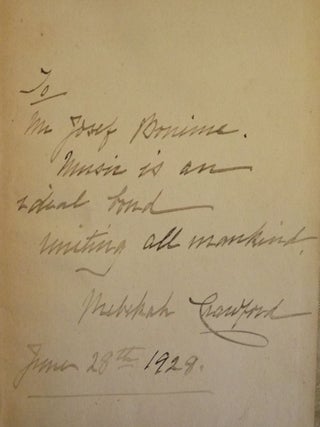 To
Mr Josef Bonime.
Music is an
ideal bond
uniting all mankind.
Rebekah Crawford
June 28th 1928.